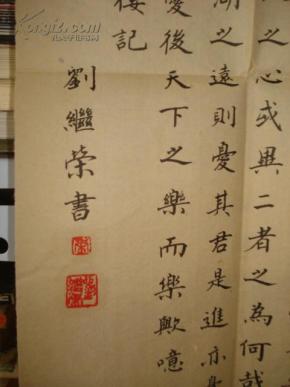 之心或異二者之為何哉
湖之遠則憂其君是進亦
憂後天下之樂而樂歟噫
樓記
劉繼榮書